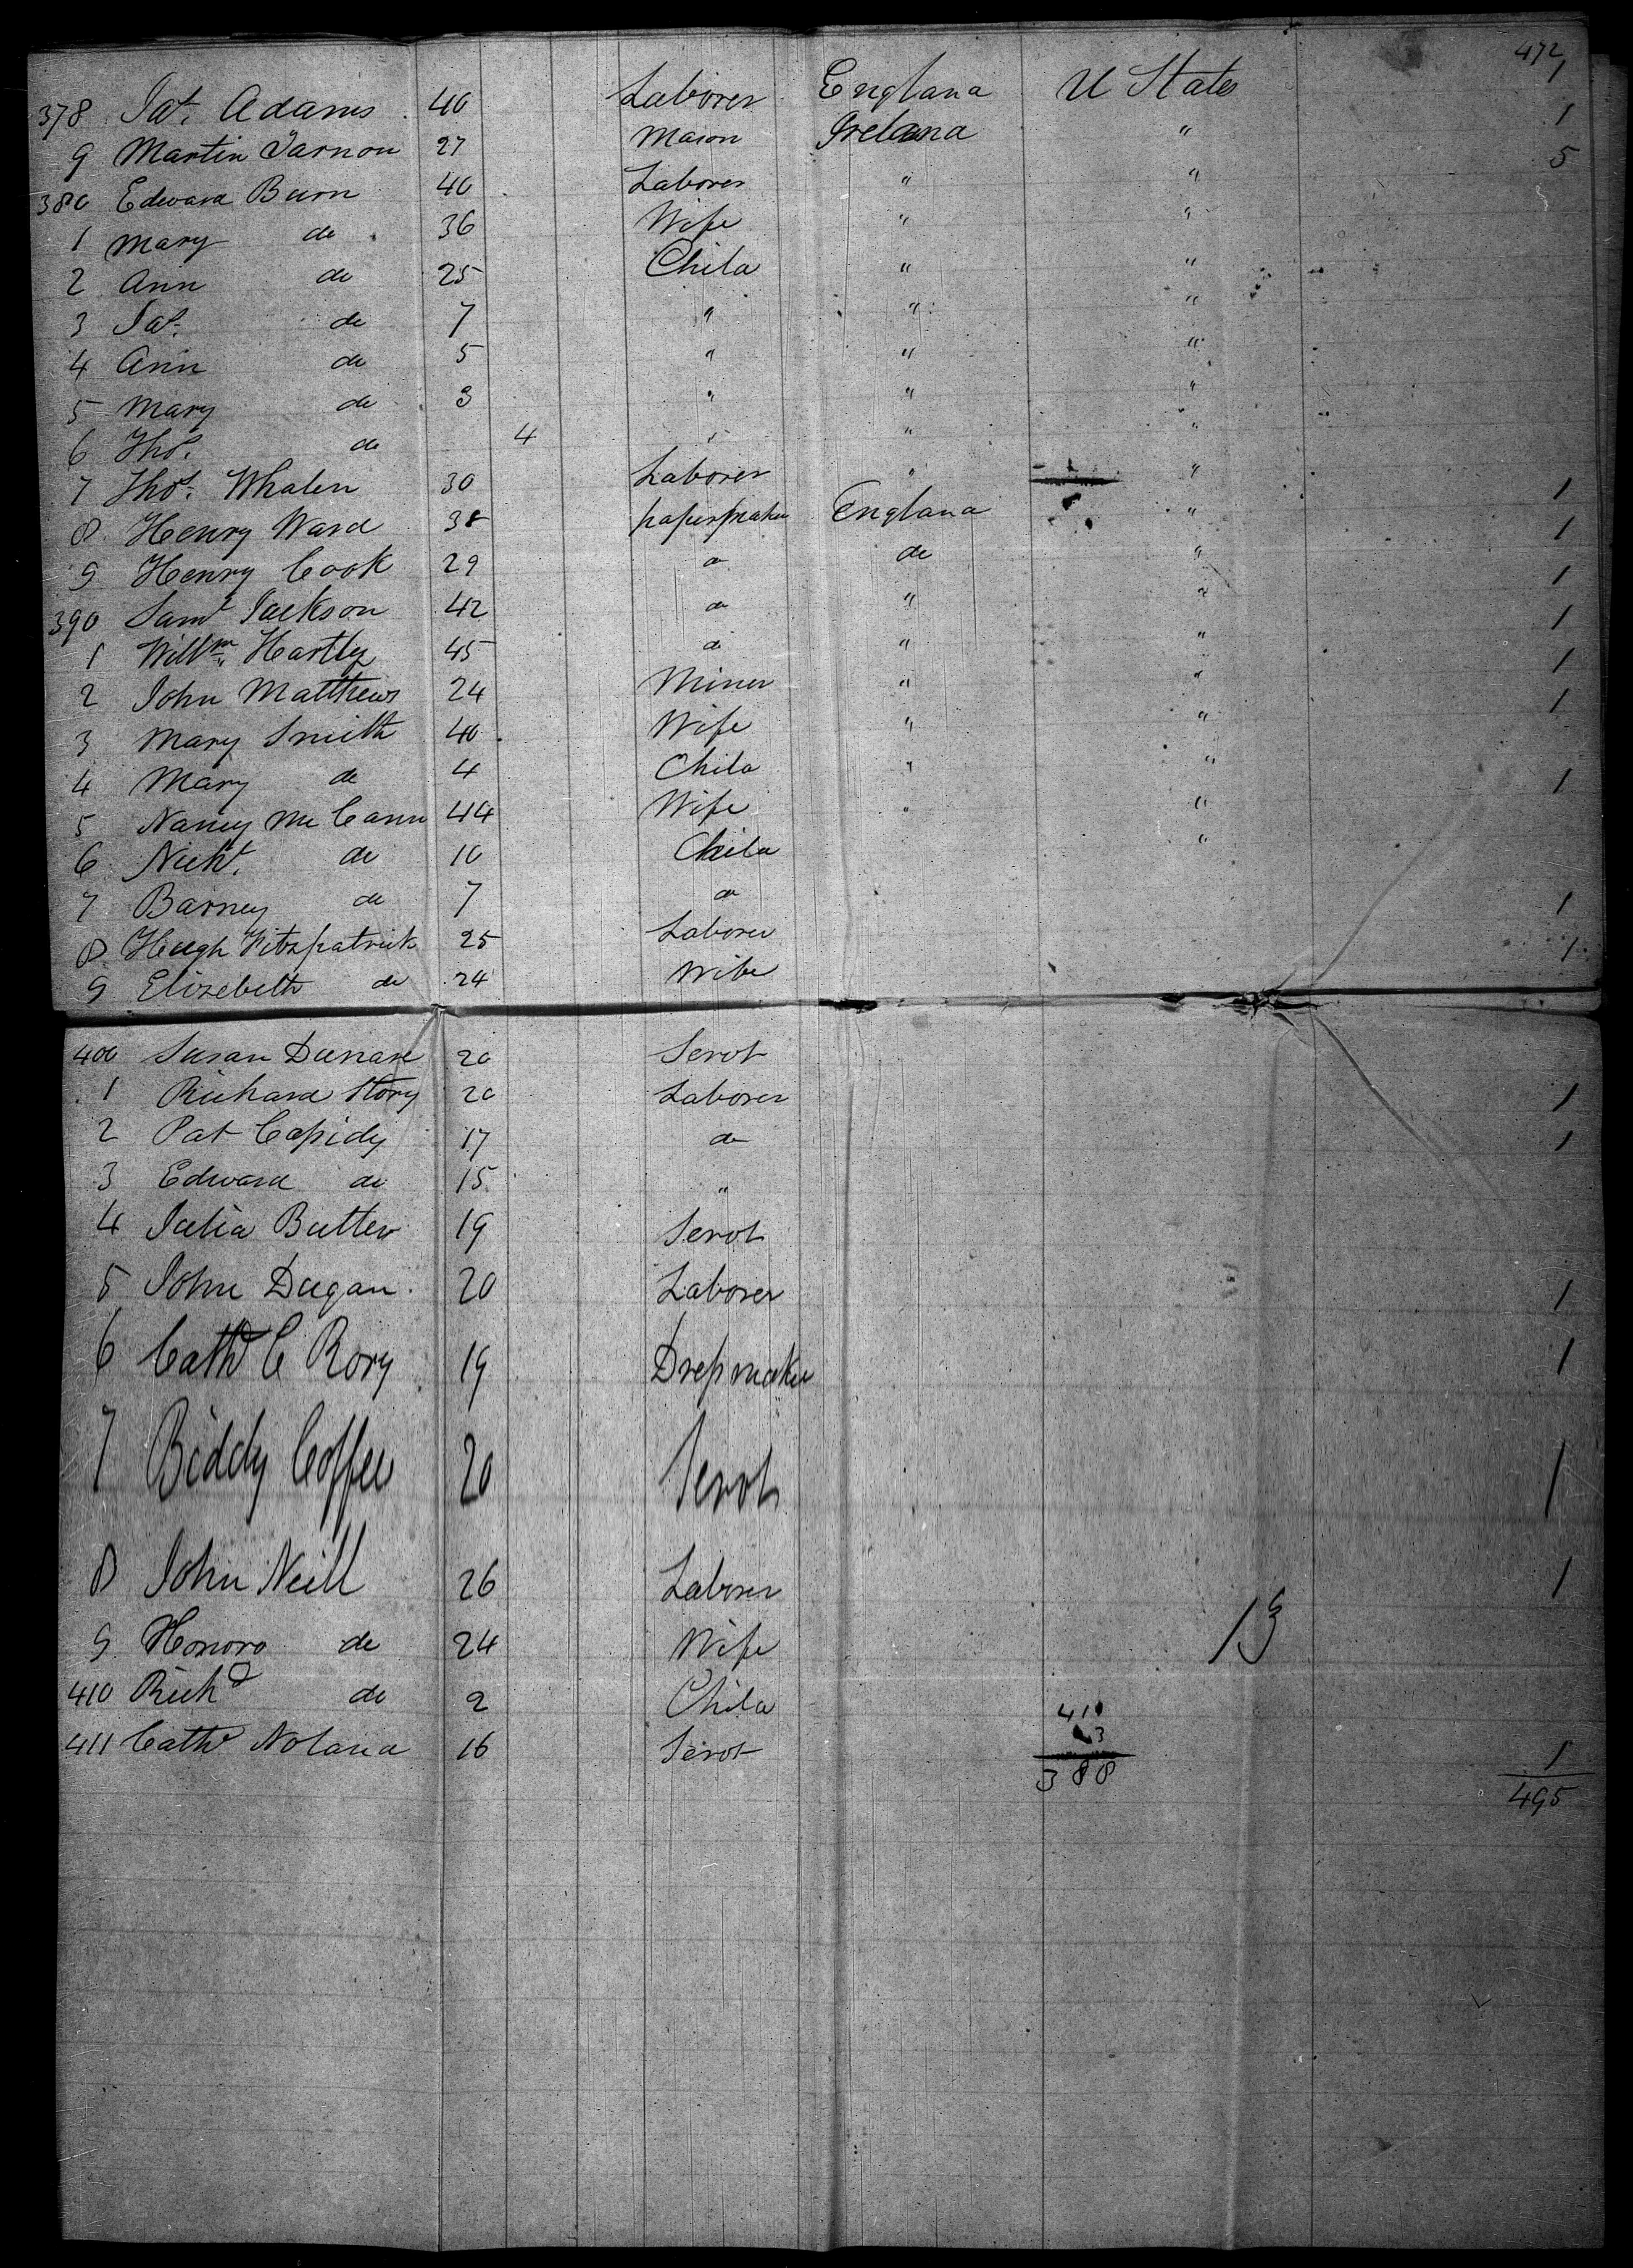 472
378 Jas. Adams 40 Laborer England U States 1
9 Martin Varnon 27 Mason Ireland " 1
380 Edward Burn 40 Laborer " " 5
1 Mary do 36 Wife " "
2 Ann do 25 Child " "
3 Jas. do 7 " " "
4 Ann do 5 " " "
5 Mary do 3 " " "
6 Thos. do 4 " " "
7 Thos. Whalen 30 Laborer " " 1
8 Henry Ward 38 papermaker England " 1
9 Henry Cook 29 do do " 1
390 Saml Jackson 42 do " " 1
1 Willm. Hartley 45 do " " 1
2 John Matthews 24 Miner " " 1
3 Mary Smith 40 Wife " "
4 Mary do 4 Child " " 1
5 Nancy McCann 44 Wife " "
6 Nichs. do 10 Child "
7 Barney do 7 do
8 Hugh Fitzpatrick 25 Laborer 1
9 Elizebeth do 24 Wife 1
400 Susan 20 Servt
1 Richard Story 20 Laborer 1
2 Pat Cassidy 17 do 1
3 Edward do 15 "
4 Julia Butler 19 Servt
5 John Dugan 20 Laborer 1
6 Cath C Rory 19 Dressmaker 1
7 Biddy Coffee 20 Servt 1
8 John Neill 26 Laborer 1
9 Honoro do 24 Wife
410 Richd do 2 Child 411
411 Cath Noland 16 Servt 23 1
388 495